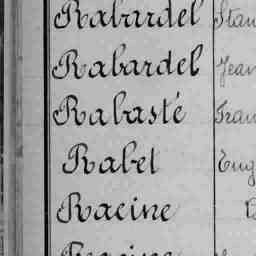 Rabardel Stan
Rabardel Jean
Rabasté Fran
Rabet Eug
Racine
Racine